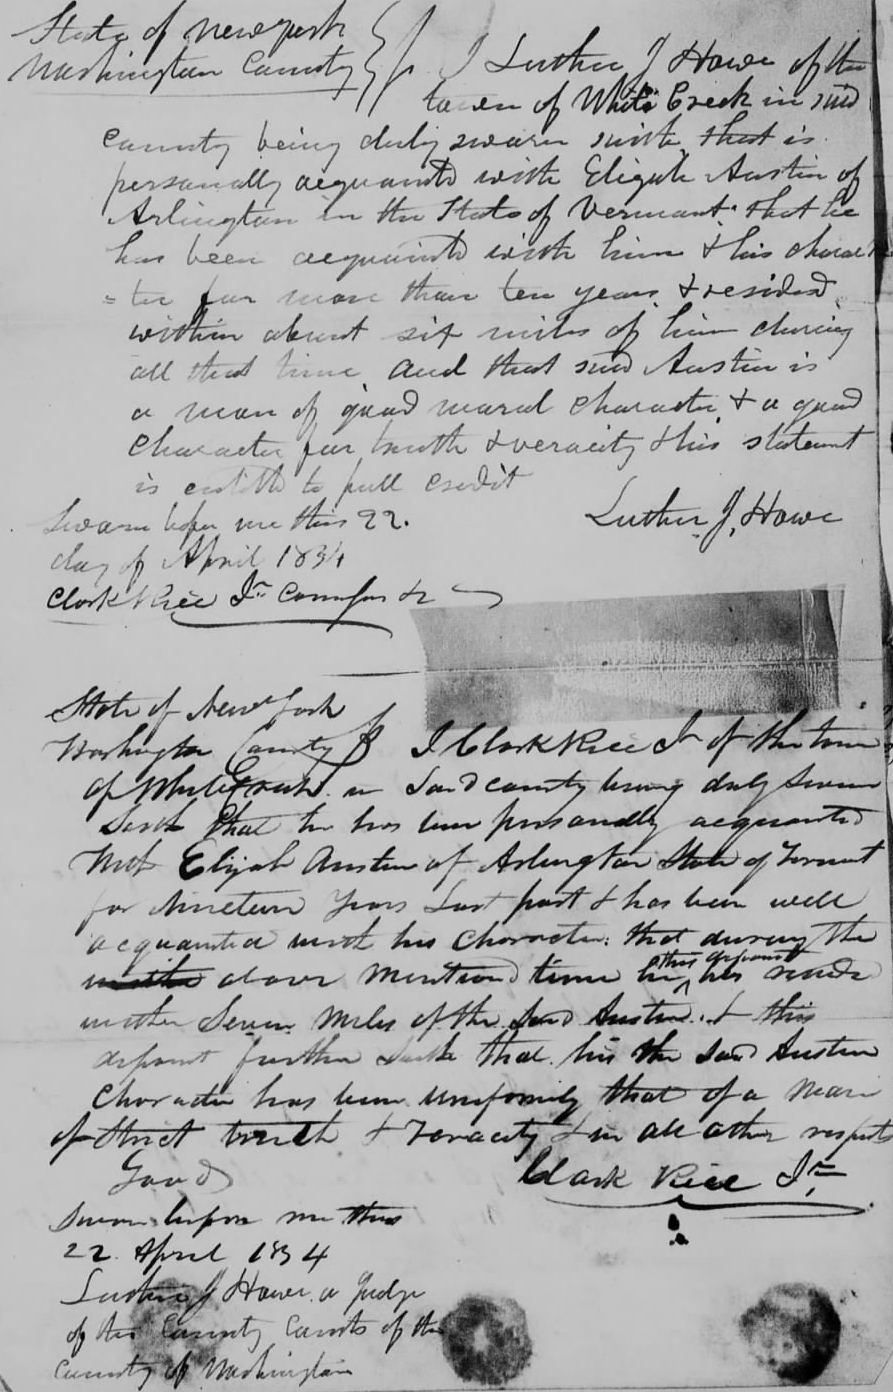 State of New York
Washington County } ss I Luther J Howe of the
town of White Creek in said
county being duly sworn saith that is
personally acquantd with Eligah Austin of
Arlington in the State of Vermont. that he
has been acquaintd with him & his charac
=ter for more than ten years & resided
within about six miles of him during
all that time and that said Austin is
a man of good moral character & a good
character for truth & veracity & his statement
is entitld to full credit
Sworn before me this 22.
Luther J. Howe
day of April 1834
Clark Rice Jr
State of New York
Washington County ss I Clark Rice Jr of the town
of White Creek in said county being duly sworn
saith that he has been personally acquainted
with Elijah Austin of Arlington State of Vermont
for Nineteen years last past & has been well
acquainted with his character: that during the
above mentiond time this deponent has reside
within Seven Miles of the said Austin. & this
depont further saith that his the said Austin
character has been uniformly that of a man
of strict truth & veracity & in all other respects
Good
Clark Rice Jr.
Sworn before me this
22 April 1834
Luther J Howe a Judge
of the County Courts of the
County of Washington